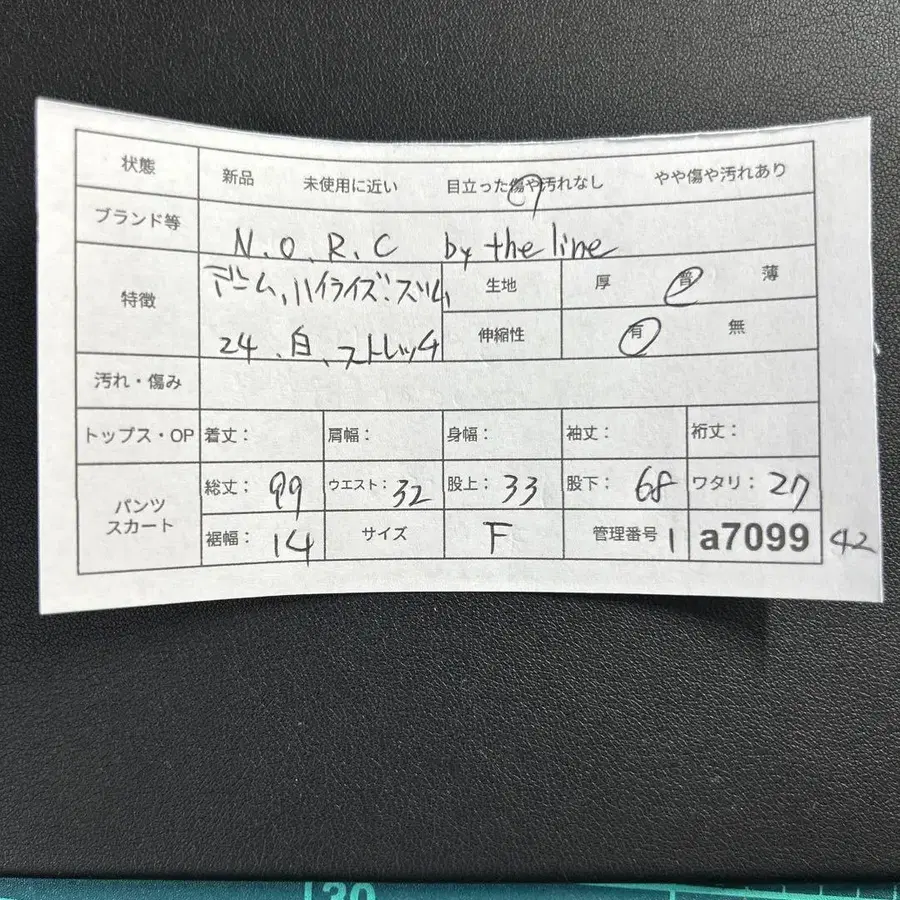 状態 新品 未使用に近い 目立った傷や汚れなし やや傷や汚れあり
ブランド等 N.O.R.C by the line
特徴 デニム、ハイライズ、スリム
24、白、ストレッチ
生地 厚 普 薄
伸縮性 有 無
汚れ・傷み
トップス・OP 着丈: 肩幅: 身幅: 袖丈: 裄丈:
パンツ スカート
総丈: 99 ウエスト: 32 股上: 33 股下: 68 ワタリ: 27
裾幅: 14 サイズ F 管理番号 1 a7099 42
30